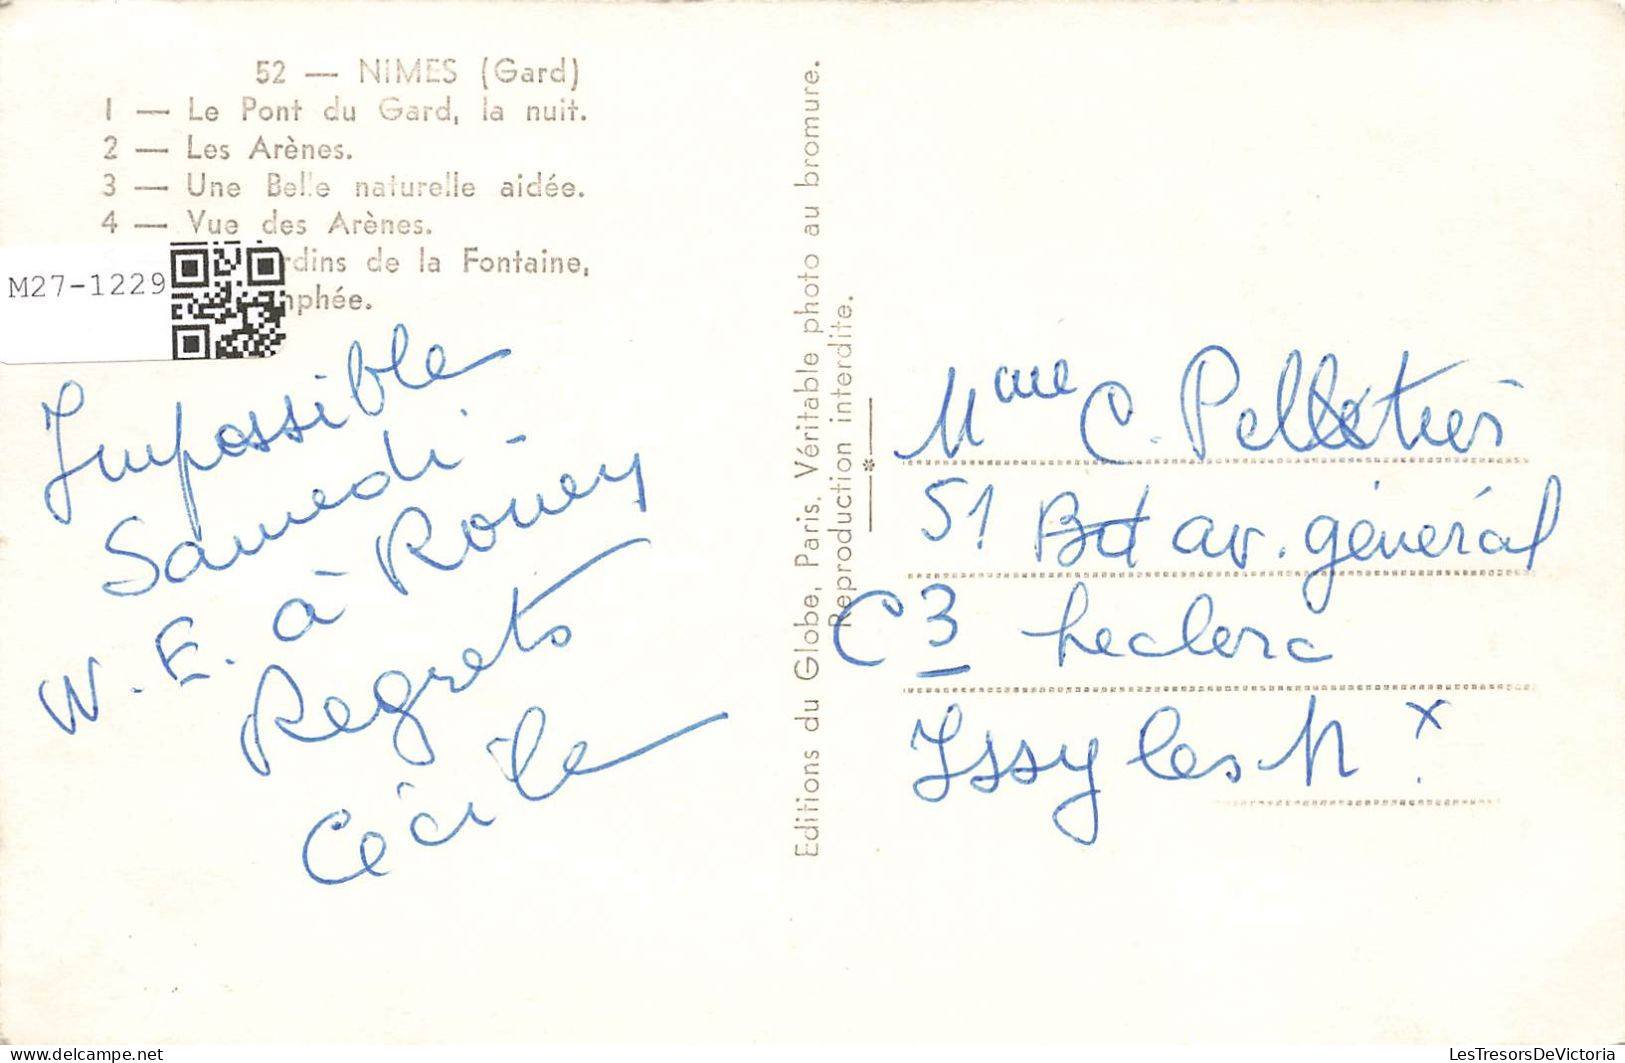 52 — NIMES (Gard)
1 — Le Pont du Gard, la nuit.
2 — Les Arènes.
3 — Une Belle naturelle aidée.
4 — Vue des Arènes.
rdins de la Fontaine,
mphée.
M27-1229
Impossible
Samedi -
W. E. à Rouen
Regrets
Cécile
Editions du Globe, Paris. Véritable photo au bromure.
Reproduction interdite.
Mme C. Pelletier
51 Bd av. général
C 3 Leclerc
Issy les Mx
delcampe.net
LesTresorsDeVictoria